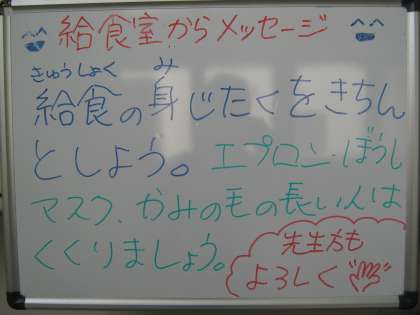 給食室からメッセージ
きゅうしょく み
給食の身じたくをきちん
としよう。エプロン・ぼうし
マスク、かみの毛の長い人は
くくりましょう。
先生方も
よろしく